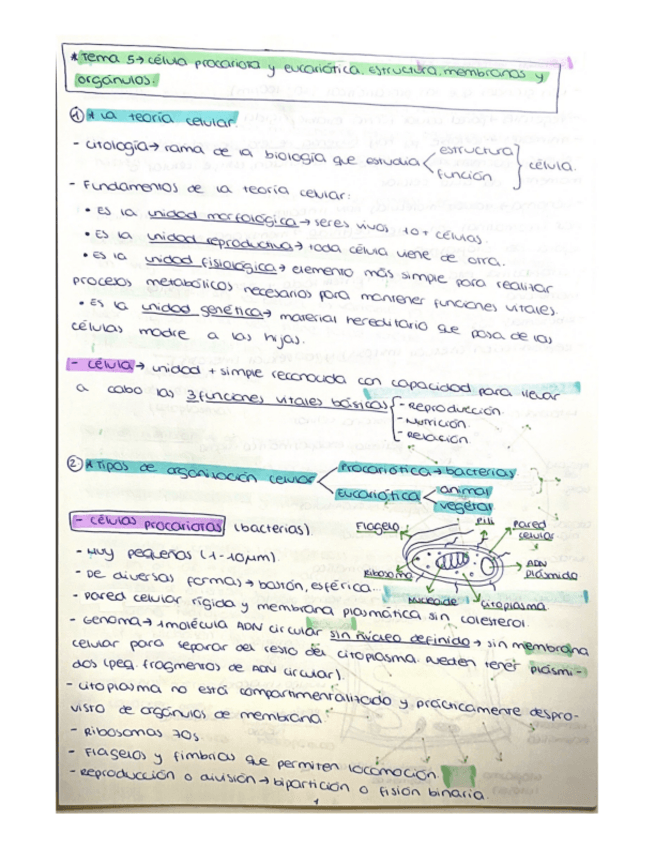 * Tema 5→ célula procariota y eucariótica. Estructura. membranas y
orgánulos.
① * La teoría celular.
- Citología→ rama de la biología que estudia < estructura función } célula.
- Fundamentos de la teoría celular:
• Es la unidad morfológica → seres vivos 1 o + células.
• Es la unidad reproductiva → toda célula viene de otra.
• Es la unidad fisiológica → elemento más simple para realizar
procesos metabólicos necesarios para mantener funciones vitales.
• Es la unidad genética → material hereditario que pasa de las
células madre a las hijas.
- célula → unidad + simple reconocida con capacidad para llevar
a cabo las 3 funciones vitales básicas { - Reproducción
- Nutrición.
- Relación.
② * Tipos de organización celular < Procariótica → bacterias
Eucariótica < animal
vegetal
- células procariotas (bacterias).
Flagelo
Pili
Pared
celular
ADN
plásmido
Ribosoma
Nucleoide
Citoplasma
- Muy pequeñas (1-10µm).
- De diversas formas → bastón, esférica...
- Pared celular rígida y membrana plasmática sin colesterol.
- Genoma → 1 molécula ADN circular sin núcleo definido → sin membrana
celular para separar del resto del citoplasma. Pueden tener plásmi-
dos (peq. fragmentos de ADN circular).
- Citoplasma no está compartimentalizado y prácticamente despro-
visto de orgánulos de membrana.
- Ribosomas 70s.
- Flagelos y fimbrias que permiten locomoción
- Reproducción o división → bipartición o fisión binaria.
1